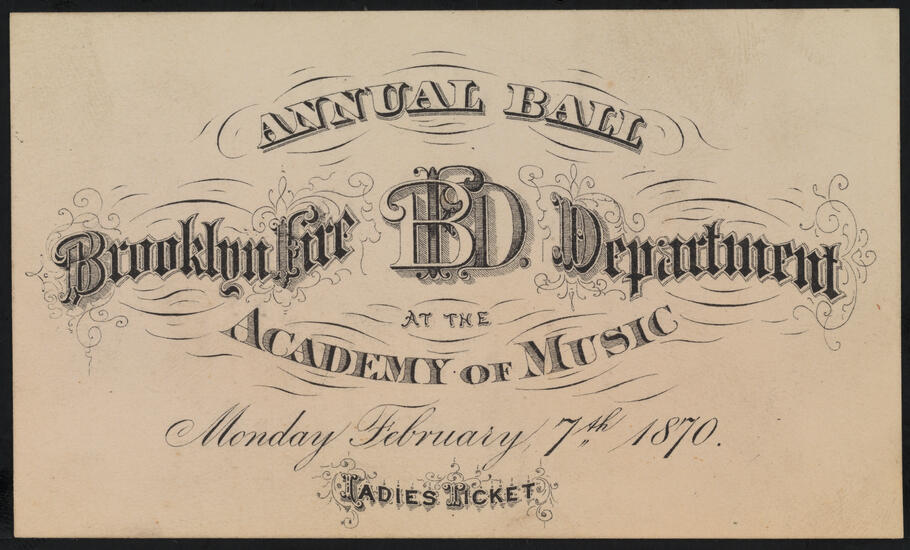 ANNUAL BALL
Brooklyn Fire BFD. Department
AT THE
ACADEMY OF MUSIC
Monday February, 7th 1870.
LADIES TICKET